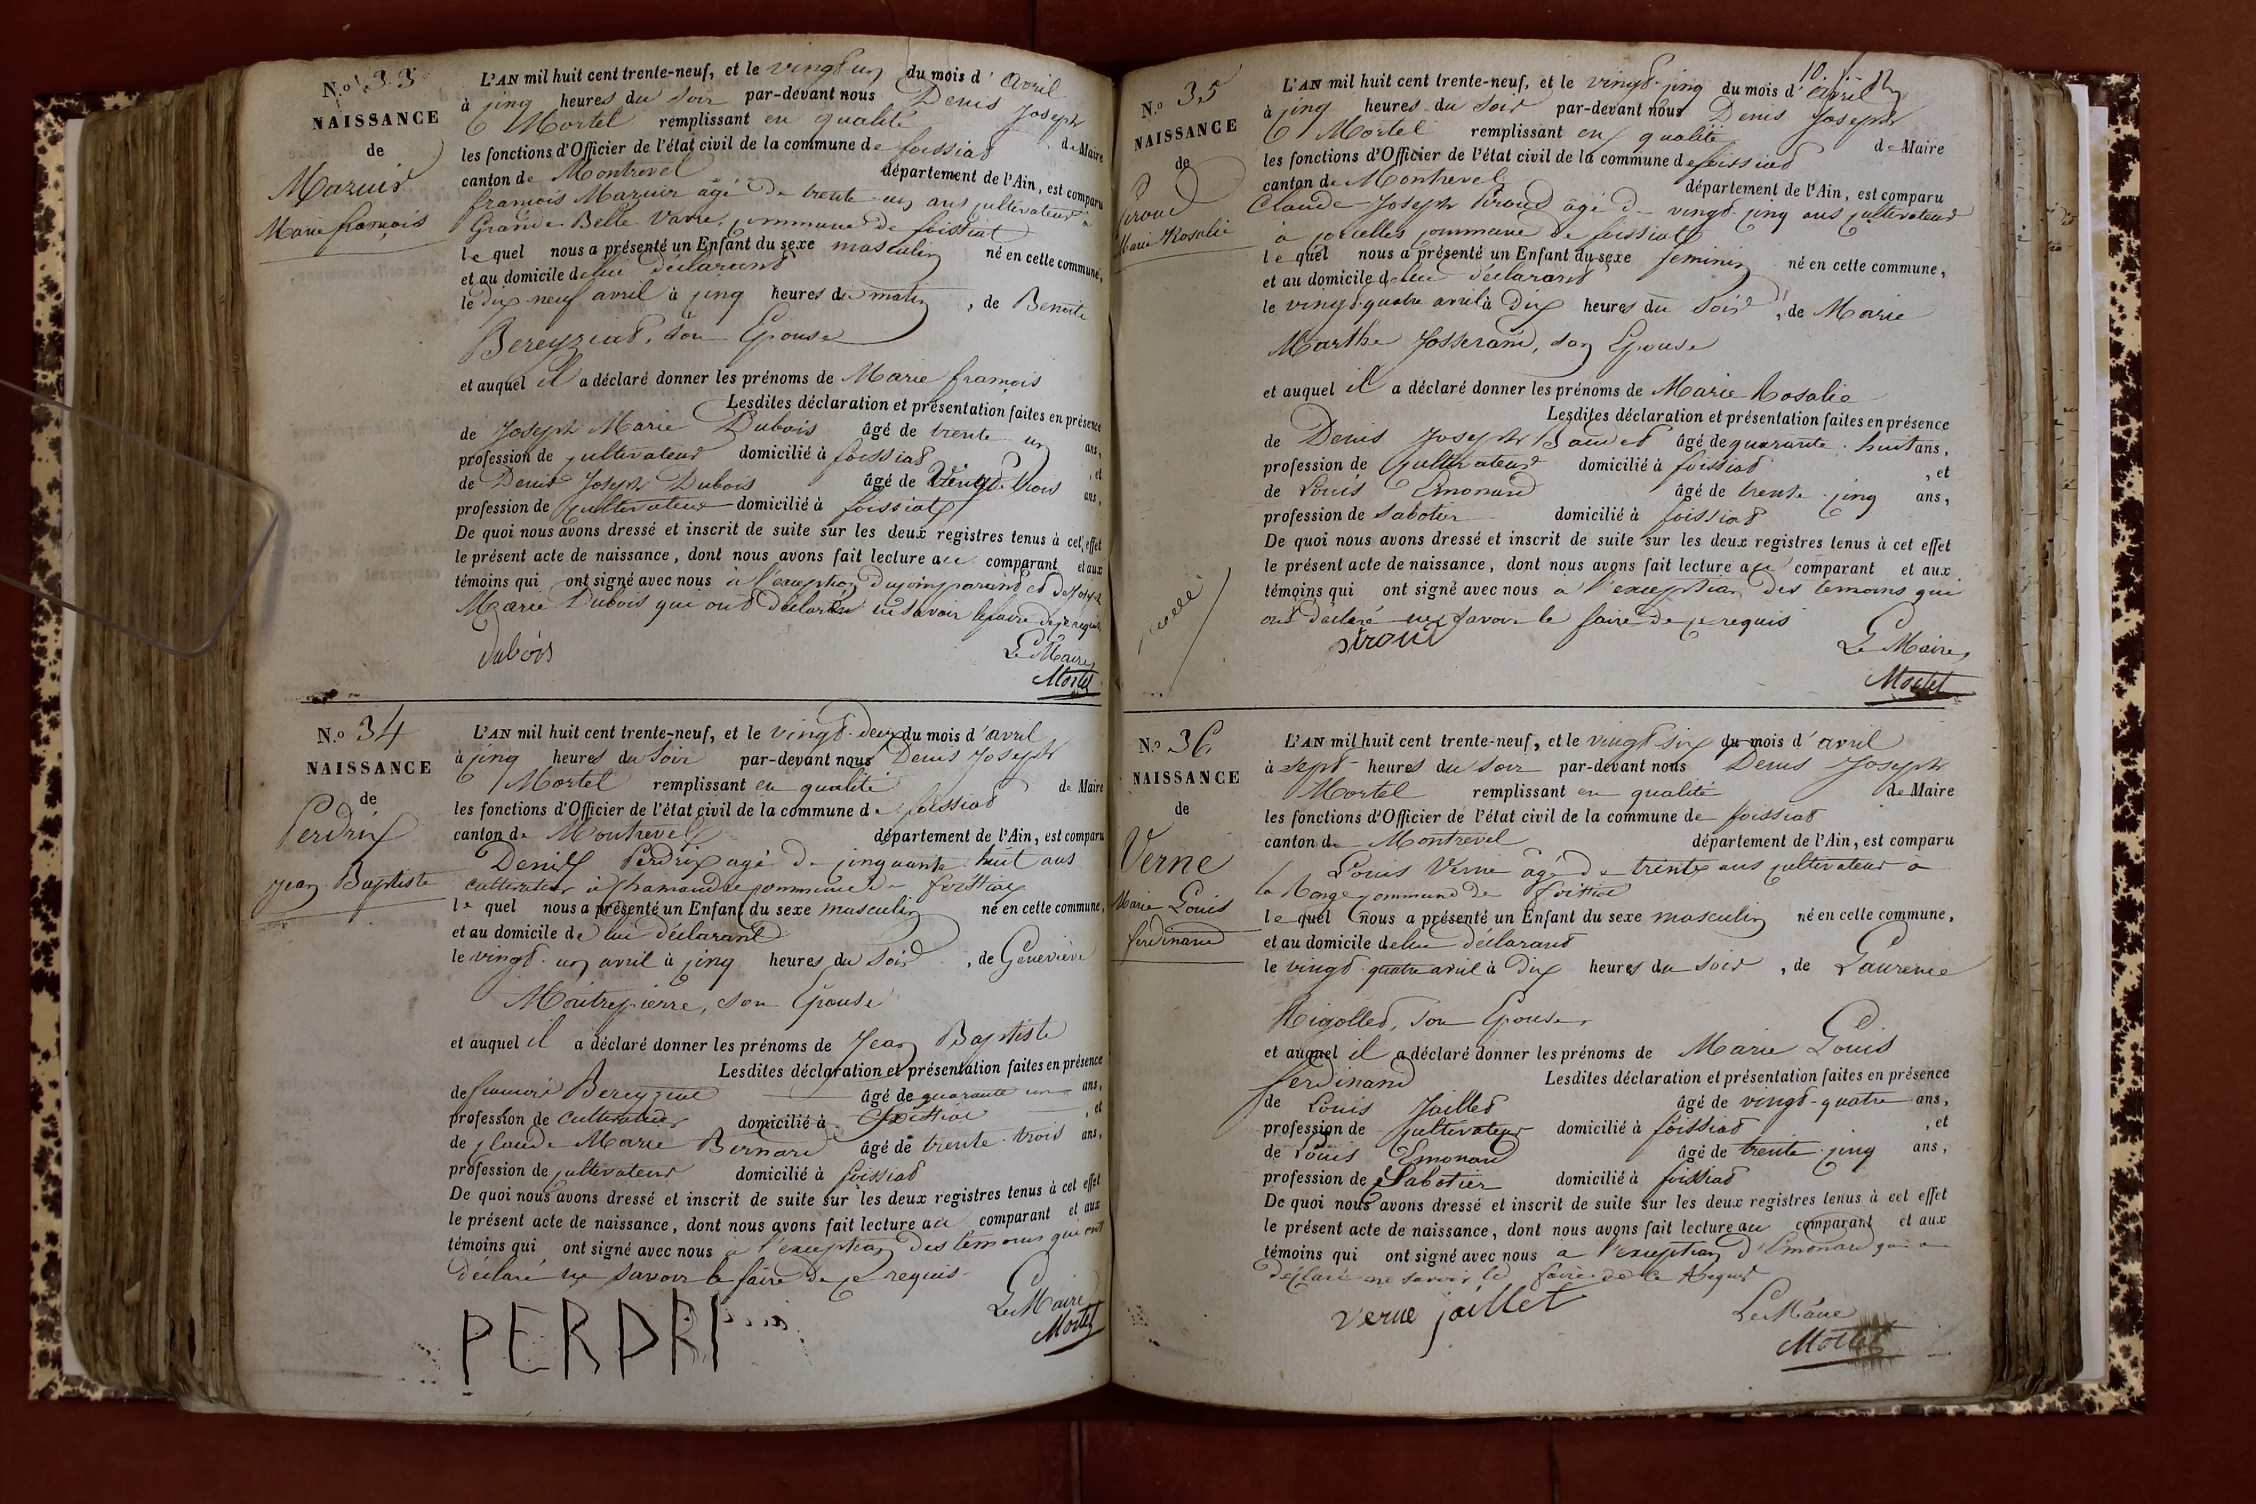 N.o 33
NAISSANCE
de
Mazuir
Marie françois
L'AN mil huit cent trente-neuf, et le vingt un du mois d'avril
à cinq heures du soir par-devant nous Denis Joseph
Mortel remplissant en qualité de Maire
les fonctions d'Officier de l'état civil de la commune de foissiat
canton de Montrevel département de l'Ain, est comparu
françois Mazuir âgé de trente un ans cultivateur à
Grande Belle Vavre, commune de foissiat
lequel nous a présenté un Enfant du sexe masculin né en cette commune,
et au domicile de lui déclarant
le dix neuf avril à cinq heures du matin, de Benoite
Bereyziat, son Epouse
et auquel il a déclaré donner les prénoms de Marie françois
Lesdites déclaration et présentation faites en présence
de Joseph Marie Dubois âgé de trente un ans,
profession de cultivateur domicilié à foissiat, et
de Denis Joseph Dubois âgé de Vingt trois ans,
profession de cultivateur domicilié à foissiat
De quoi nous avons dressé et inscrit de suite sur les deux registres tenus à cet effet
le présent acte de naissance, dont nous avons fait lecture au comparant et aux
témoins qui ont signé avec nous à l'exception du comparant et de Joseph
Marie Dubois qui ont déclaré ne savoir le faire de ce requis
dubois
Le Maire
Mortel
N.o 34
NAISSANCE
de
Perdrix
Jean Baptiste
L'AN mil huit cent trente-neuf, et le vingt-deux du mois d'avril
à cinq heures du soir par-devant nous Denis Joseph
Mortel remplissant en qualité de Maire
les fonctions d'Officier de l'état civil de la commune de foissiat
canton de Montrevel département de l'Ain, est comparu
Denis Perdrix agé de cinquante huit ans
cultivateur à commune de foissiat
lequel nous a présenté un Enfant du sexe masculin né en cette commune,
et au domicile de lui déclarant
le vingt-un avril à cinq heures du soir, de Geneviève
Montrepierre, son Epouse
et auquel il a déclaré donner les prénoms de Jean Baptiste
Lesdites déclaration et présentation faites en présence
de Bereyziat âgé de quarante un ans,
profession de cultivateur domicilié à foissiat, et
de Claude Marie Bernard âgé de trente-trois ans,
profession de cultivateur domicilié à foissiat
De quoi nous avons dressé et inscrit de suite sur les deux registres tenus à cet effet
le présent acte de naissance, dont nous avons fait lecture au comparant et aux
témoins qui ont signé avec nous à l'exception des temoins qui ont
déclaré ne savoir le faire de ce requis
PERDRI
Le Maire
Mortel
10.
N.o 35
NAISSANCE
de
Piroud
Marie Rosalie
L'AN mil huit cent trente-neuf, et le vingt-cinq du mois d'avril
à cinq heures du soir par-devant nous Denis Joseph
Mortel remplissant en qualité de Maire
les fonctions d'Officier de l'état civil de la commune de foissiat
canton de Montrevel département de l'Ain, est comparu
Claude Joseph Piroud âgé de vingt-cinq ans cultivateur
à corcelles commune de foissiat
lequel nous a présenté un Enfant du sexe feminin né en cette commune,
et au domicile de lui déclarant
le vingt-quatre avril à dix heures du soir, de Marie
Marthe Josserand, son Epouse
et auquel il a déclaré donner les prénoms de Marie Rosalie
Lesdites déclaration et présentation faites en présence
de Denis Joseph âgé de quarante-huit ans,
profession de cultivateur domicilié à foissiat, et
de Louis Emonard âgé de trente-cinq ans,
profession de sabotier domicilié à foissiat
De quoi nous avons dressé et inscrit de suite sur les deux registres tenus à cet effet
le présent acte de naissance, dont nous avons fait lecture au comparant et aux
témoins qui ont signé avec nous à l'exception des temoins qui
ont déclaré ne savoir le faire de ce requis
piroud
Le Maire
Mortel
N.o 36
NAISSANCE
de
Verne
Marie Louis
ferdinand
L'AN mil huit cent trente-neuf, et le vingt-six du mois d'avril
à sept heures du soir par-devant nous Denis Joseph
Mortel remplissant en qualité de Maire
les fonctions d'Officier de l'état civil de la commune de foissiat
canton de Montrevel département de l'Ain, est comparu
Louis Verne âgé de trente ans cultivateur à
la commune de foissiat
lequel nous a présenté un Enfant du sexe masculin né en cette commune,
et au domicile de lui déclarant
le vingt-quatre avril à dix heures du soir, de Laurence
Rigollet, son Epouse
et auquel il a déclaré donner les prénoms de Marie Louis
ferdinand Lesdites déclaration et présentation faites en présence
de Louis Jaillet âgé de vingt-quatre ans,
profession de cultivateur domicilié à foissiat, et
de Louis Emonard âgé de trente-cinq ans,
profession de Sabotier domicilié à foissiat
De quoi nous avons dressé et inscrit de suite sur les deux registres tenus à cet effet
le présent acte de naissance, dont nous avons fait lecture au comparant et aux
témoins qui ont signé avec nous a l'exception d'Emonard qui a
déclaré ne savoir le faire de ce Requis
verne jaillet
Le Maire
Mortel